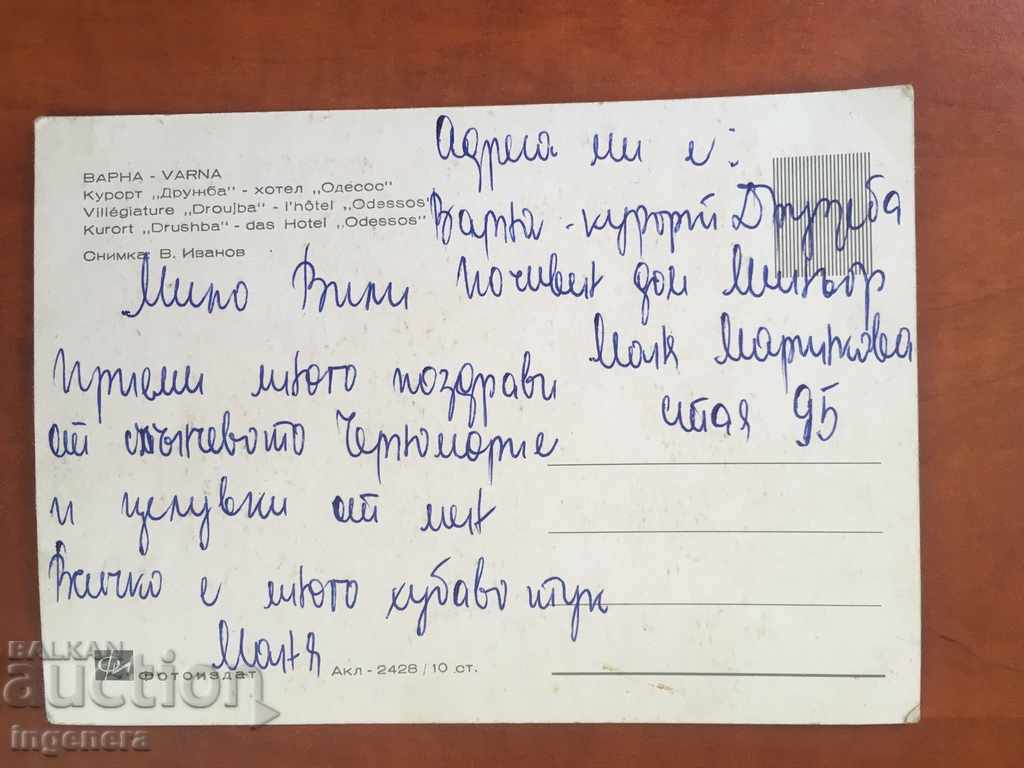 ВАРНА - VARNA
Курорт „Дружба" - хотел „Одесос"
Villégiature „Droujba" - l'hôtel „Odessos"
Kurort „Drushba" - das Hotel „Odessos"
Снимка: В. Иванов
Адреса ми е:
Варна - курорт Дружба
почивен дом Миньор
Маня Маринкова
стая 95
Мило Вили
Приеми много поздрави
от слънчевото Черноморие
и целувки от мен
Всичко е много хубаво тук
Маня
Фотоиздат
Акл - 2428 / 10 ст.
BALKAN
auction
ingenera